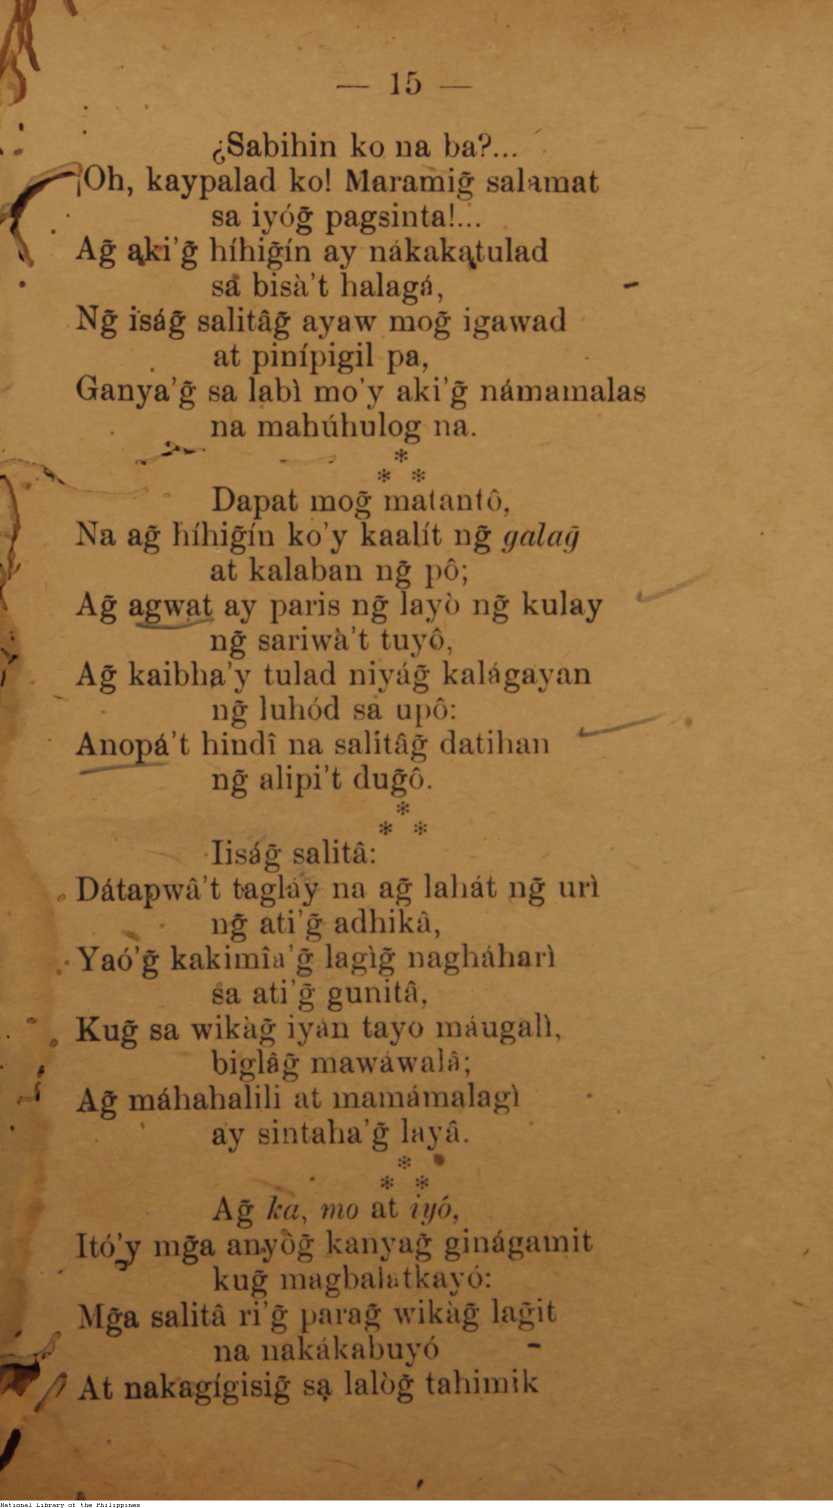 — 15 —
¿Sabihin ko na ba?...
¡Oh, kaypalad ko! Maramig̃ salamat
sa iyóg̃ pagsinta!...
Ag̃ aki’g̃ híhig̃ín ay nákakatulad
sa bisà’t halagá,
Ng̃ iság̃ salitâg̃ ayaw mog̃ igawad
at pinípigil pa,
Ganya’g̃ sa labì mo’y aki’g̃ námamalas
na mahúhulog na.
*
* *
Dapat mog̃ matantô,
Na ag̃ híhig̃ín ko’y kaalít ng̃ galag̃
at kalaban ng̃ pô;
Ag̃ agwat ay paris ng̃ layò ng̃ kulay
ng̃ sariwà’t tuyô,
Ag̃ kaibha’y tulad niyág̃ kalágayan
ng̃ luhód sa upô:
Anopá’t hindî na salitâg̃ datihan
ng̃ alipi’t dug̃ô.
*
* *
Iiság̃ salitâ:
Dátapwâ’t taglay na ag̃ lahát ng̃ urì
ng̃ ati’g̃ adhikâ,
Yaó’g̃ kakimîa’g̃ lagìg̃ nagháharì
sa ati’g̃ gunitâ,
Kug̃ sa wikàg̃ iyán tayo máugalì,
biglâg̃ mawáwalâ;
Ag̃ máhahalili at mamámalagì
ay sintaha’g̃ layâ.
*
* *
Ag̃ ka, mo at iyó,
Itó’y mg̃a anyòg̃ kanyag̃ ginágamit
kug̃ magbalatkayó:
Mg̃a salitâ ri’g̃ parag̃ wikàg̃ lag̃it
na nakákabuyó
At nakagígisig̃ sa lalòg̃ tahimik
National Library of the Philippines